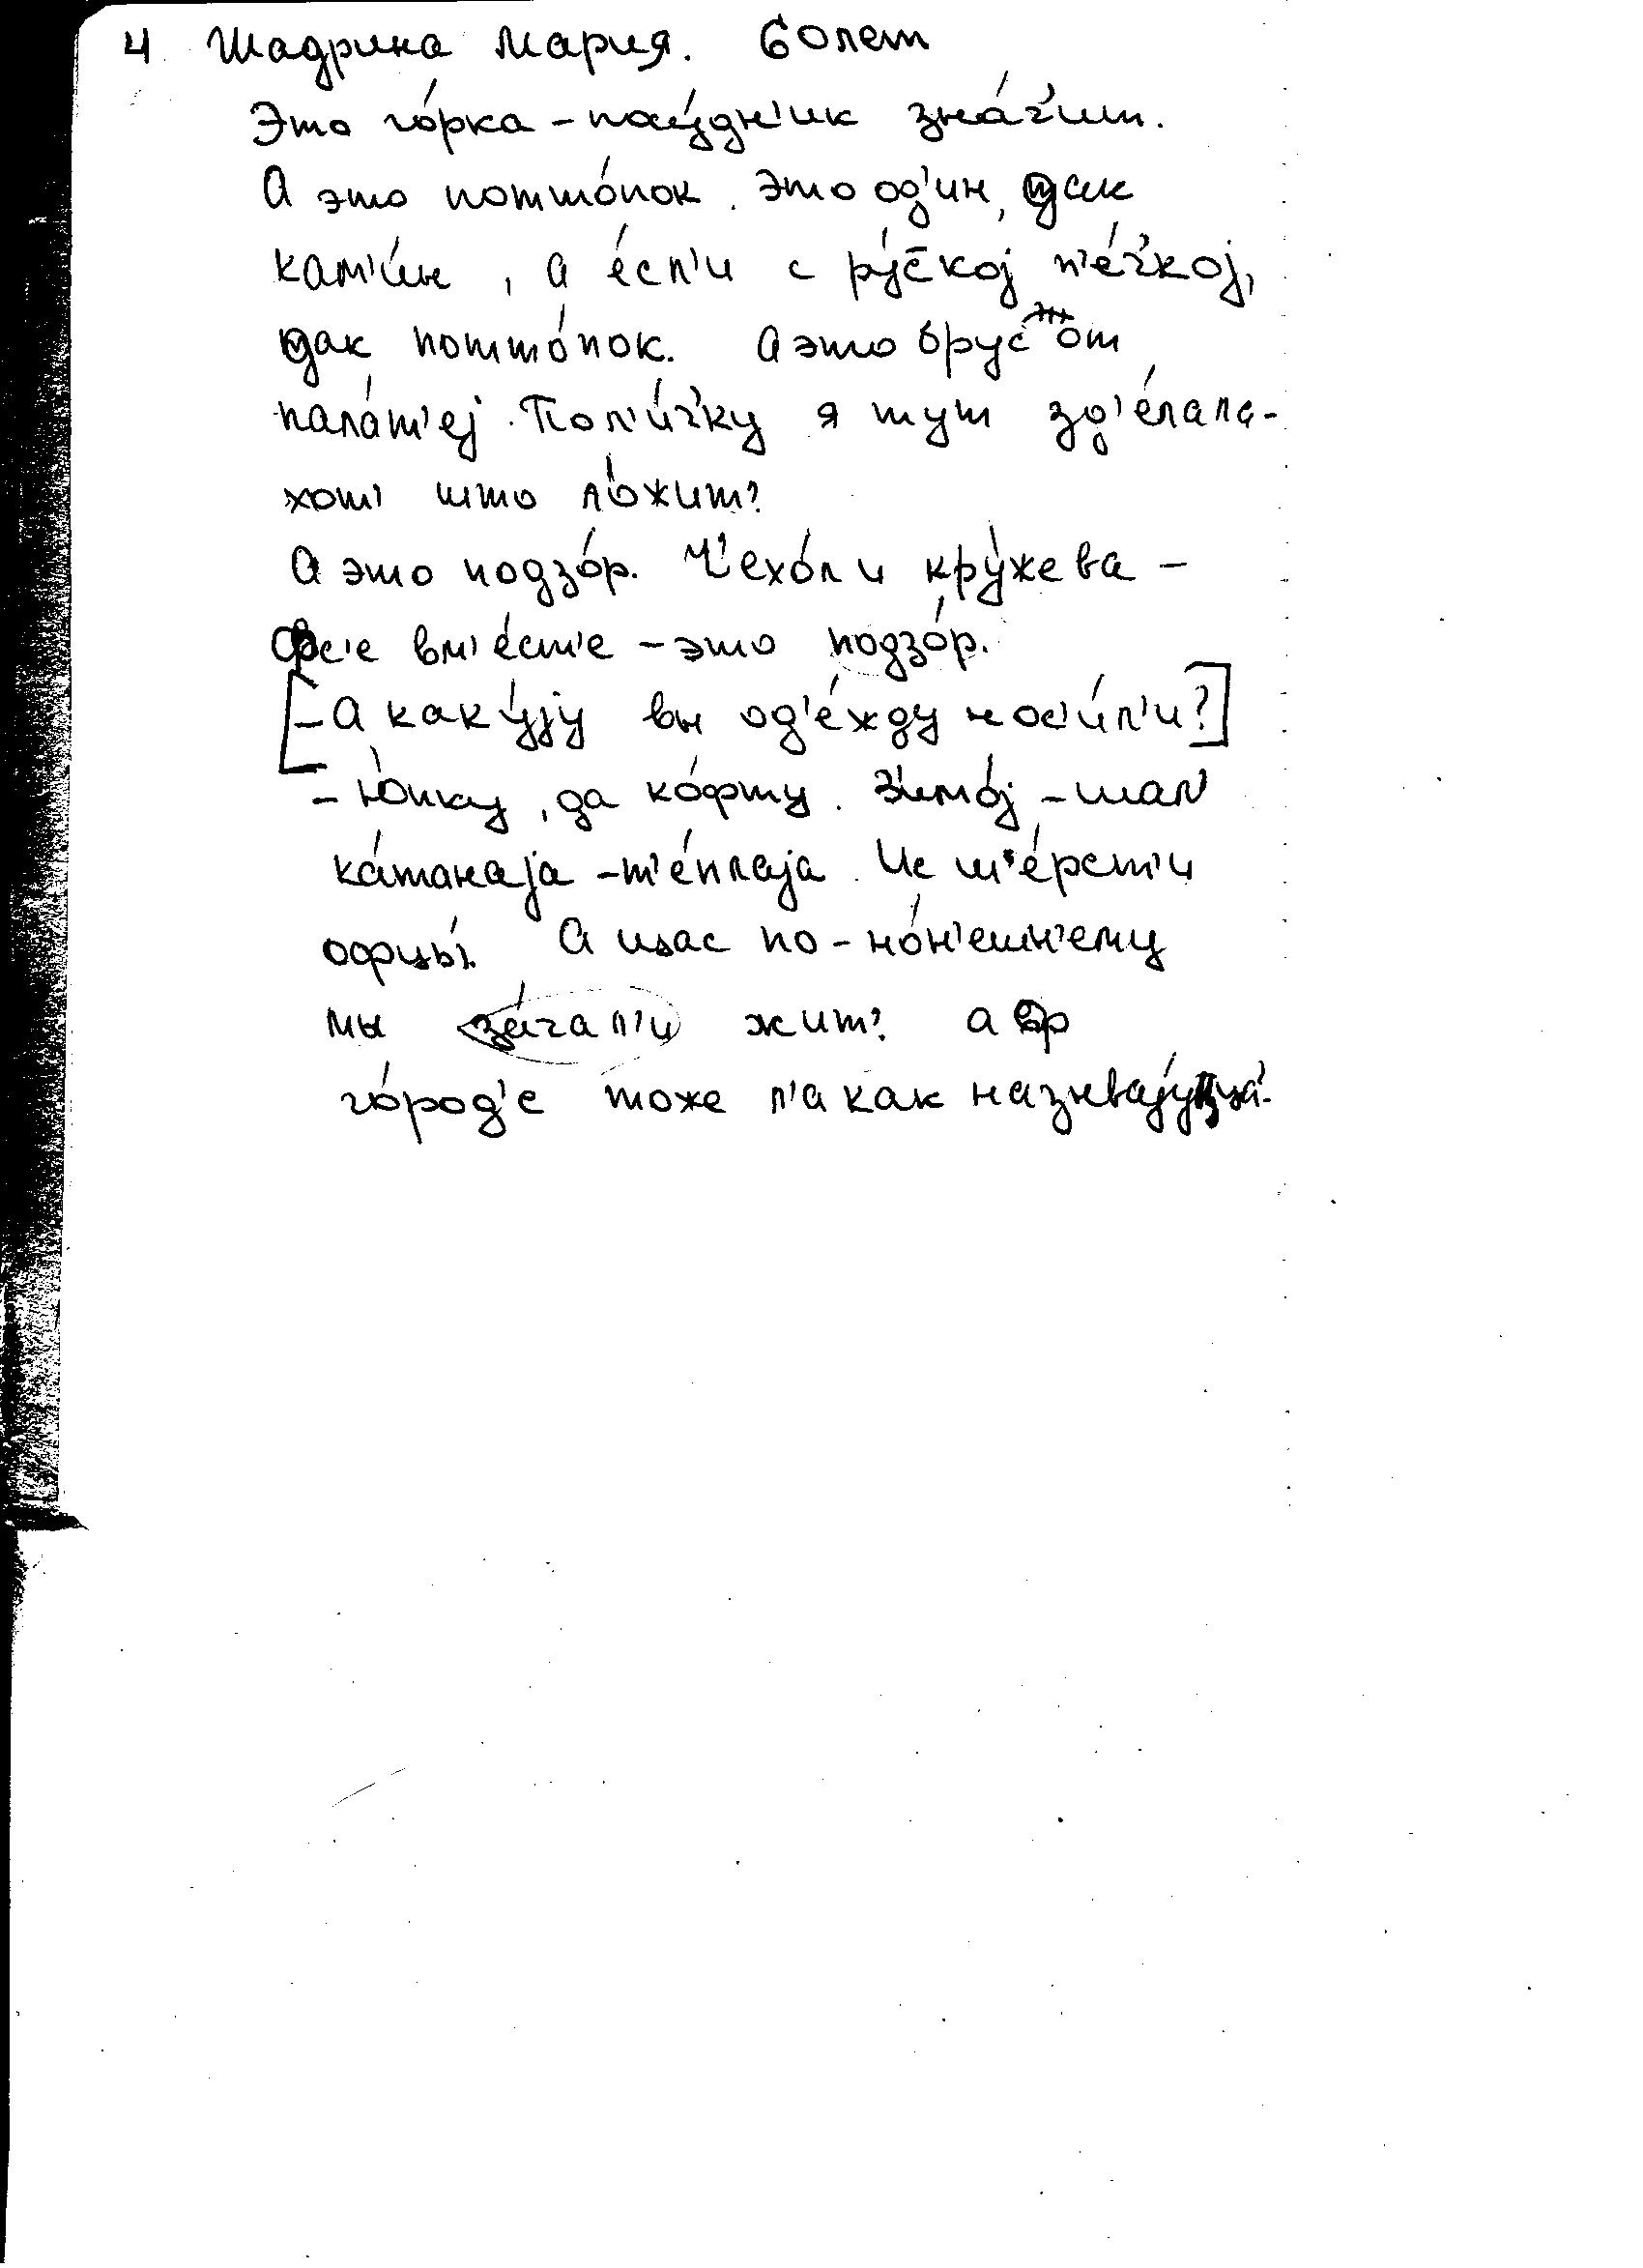 4 Шадрина Мария. 60 лет
Это го́рка – пау́дн'ик зна́ч'ит.
А это потто́пок. Это од'ин, дак
кам'и́н, а е́сл'и с ру́с̄кој п'е́ч'кој,
дак потто́пок. А это брус от
пала́т'еј. Пол'и́ч'ку я тут зд'е́лала-
хот' што ло́жит'
А это подзо́р. Ч'ехо́л и кру́жева –
Фс'е вм'е́ст'е – это подзо́р.
[– А каку́ју вы од'е́жду нос'и́л'и?]
– Ю́пку, да ко́фту. З'имо́ј – шал'
ка́танаја – т'е́плаја. Ис ш'е́рст'и
офцы́. А щас по-но́н'ешн'ему
мы за́чал'и жит'. а ф
го́род'е тоже л'а как называ́јуцца.